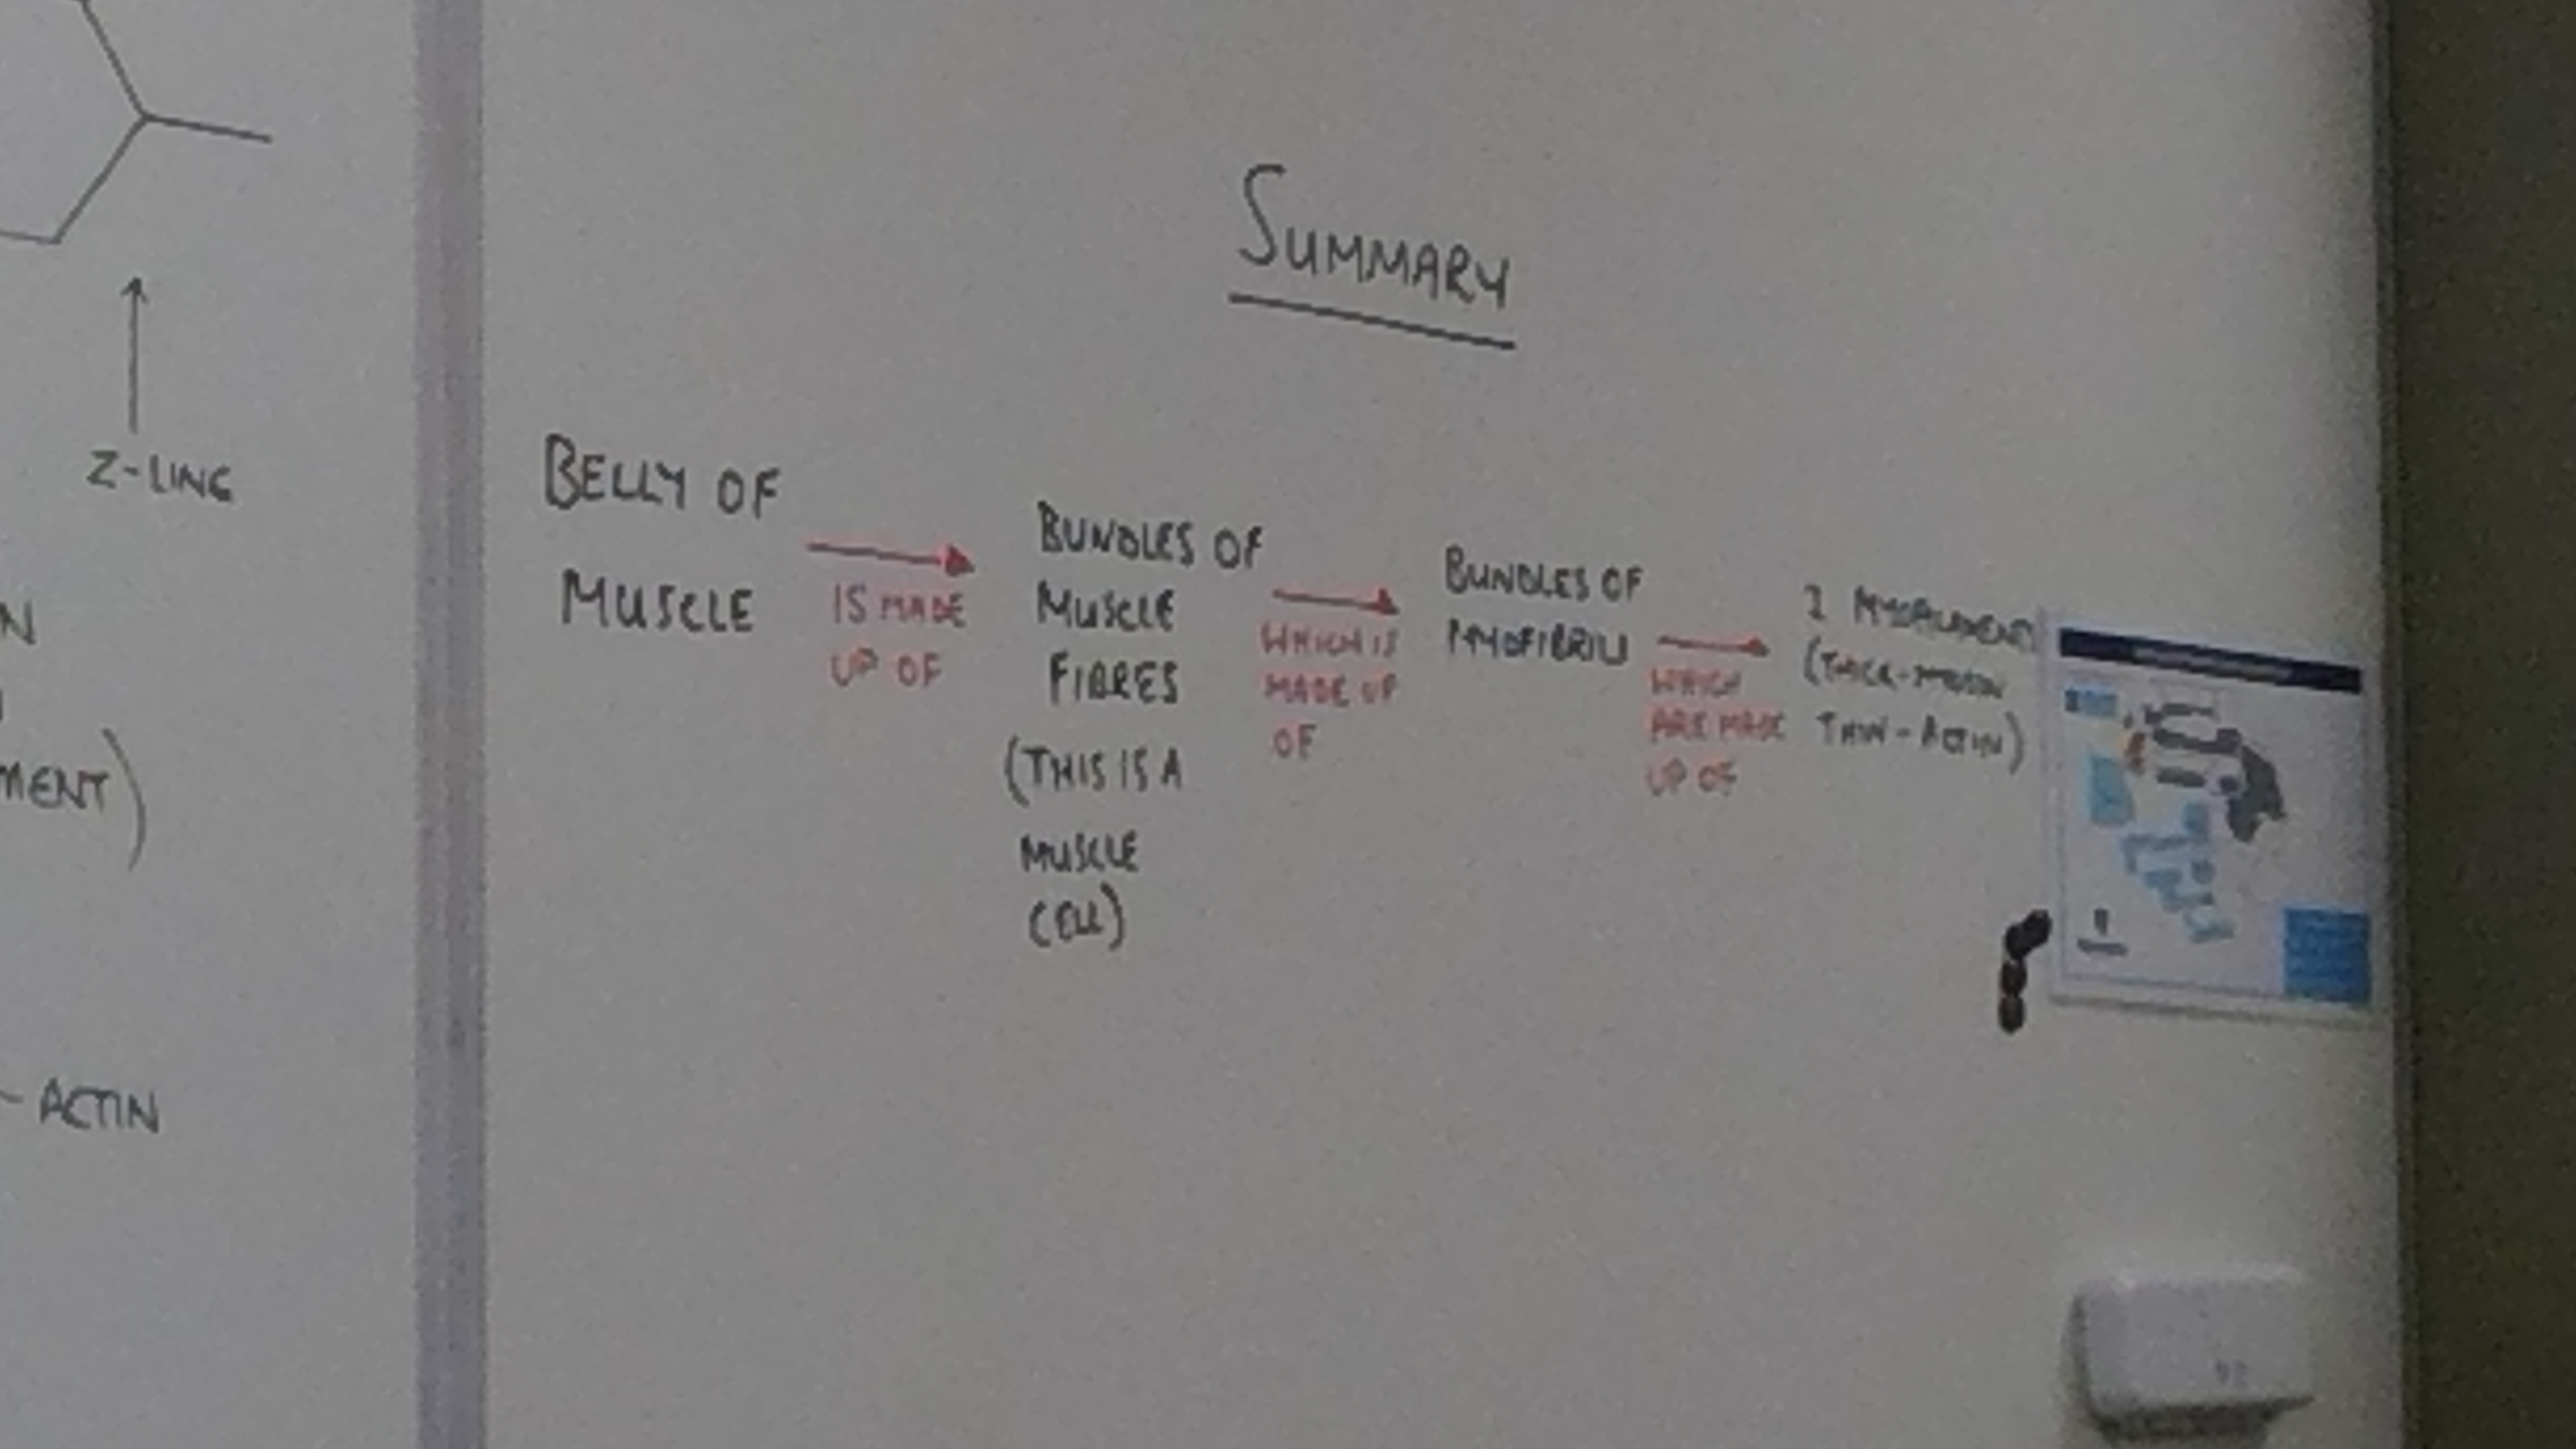 SUMMARY
Z-LINE
N
MENT)
- ACTIN
BELLY OF
MUSCLE
IS MADE
UP OF
BUNDLES OF
MUSCLE
FIBRES
(THIS IS A
MUSCLE
CELL)
WHICH IS
MADE UP
OF
BUNDLES OF
MYOFIBRILS
WHICH
ARE MADE
UP OF
2 MYOFILAMENTS
(THICK-MYOSIN
THIN-ACTIN)